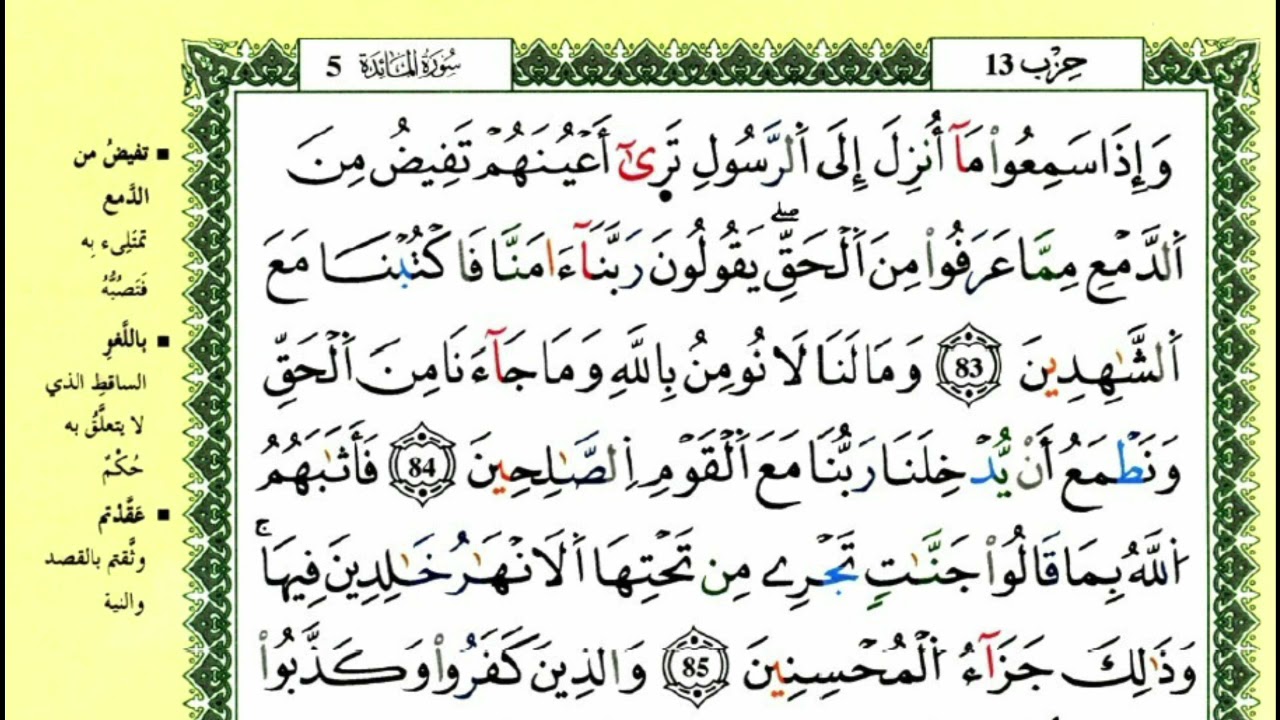 حِزْب 13
سُورَةُ المَائِدَة 5
وَإِذَا سَمِعُواْ مَآ أُنزِلَ إِلَى اَ۬لرَّسُولِ تَر۪ىٰٓ أَعْيُنَهُمْ تَفِيضُ مِنَ
اَ۬لدَّمْعِ مِمَّا عَرَفُواْ مِنَ اَ۬لْحَقِّۖ يَقُولُونَ رَبَّنَآ ءَامَنَّا فَاكْتُبْنَا مَعَ
اَ۬لشَّٰهِدِينَ 83 وَمَا لَنَا لَا نُومِنُ بِاللَّهِ وَمَا جَآءَنَا مِنَ اَ۬لْحَقِّ
وَنَطْمَعُ أَنْ يُّدْخِلَنَا رَبُّنَا مَعَ اَ۬لْقَوْمِ اِ۬لصَّٰلِحِينَ 84 فَأَثَٰبَهُمُ
اُ۬للَّهُ بِمَا قَالُواْ جَنَّٰتٍ تَجْرِے مِن تَحْتِهَا اَ۬لَانْهَٰرُ خَٰلِدِينَ فِيهَاۚ
وَذَٰلِكَ جَزَآءُ اُ۬لْمُحْسِنِينَ 85 وَالذِينَ كَفَرُواْ وَكَذَّبُواْ
■ تفيضُ من
الدَّمع
تمتَلِىء بِه
فَتَصُبُّهُ
■ باللَّغوِ
الساقطِ الذي
لا يتعلَّقُ به
حُكْمٌ
■ عَقَّدْتم
وثَّقتم بالقصد
والنية